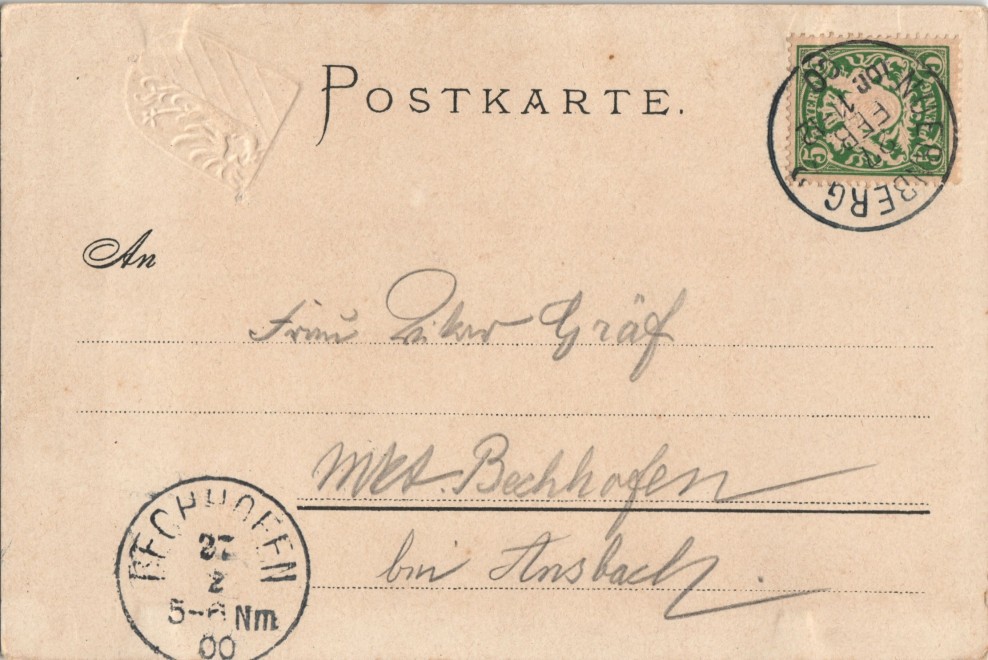 POSTKARTE.
An
Frau Vikar Gräf
Mkt. Bechhofen
bei Ansbach.
BECHHOFEN
27
2
5-6 Nm
00
FEB
5 5